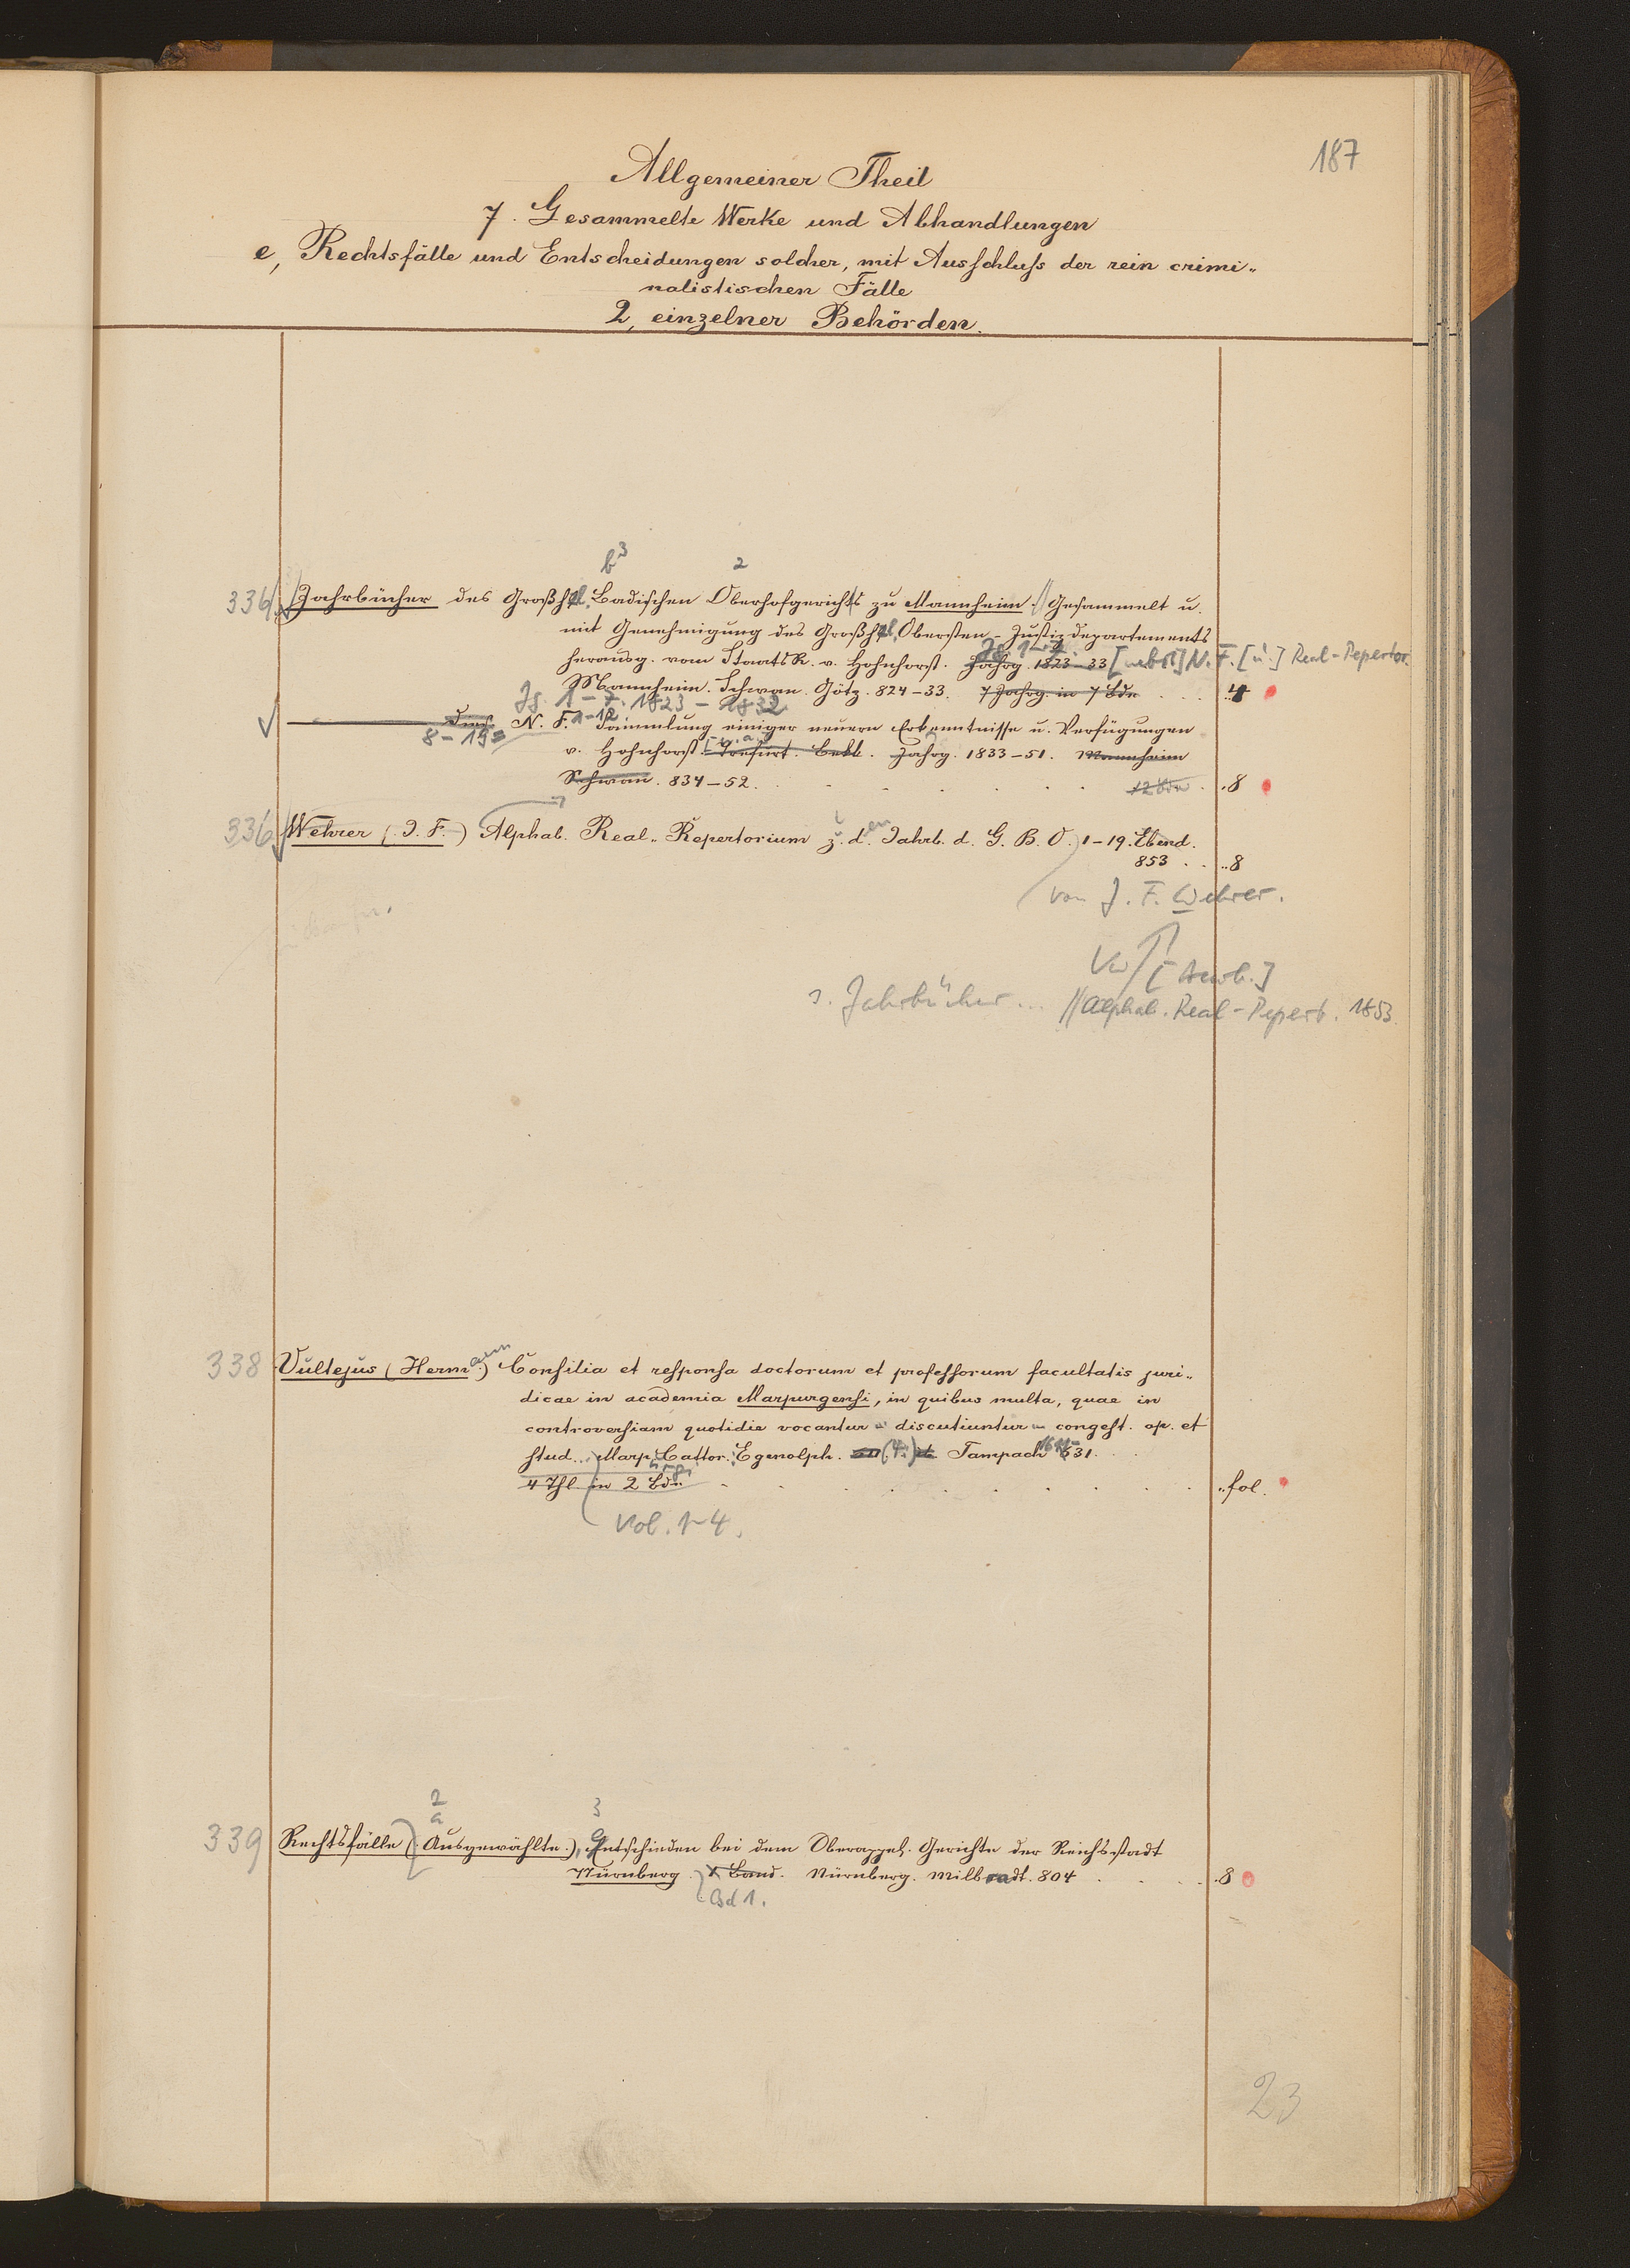 187
Allgemeiner Theil
7. Gesammelte Werke und Abhandlungen
e, Rechtsfälle und Entscheidungen solcher, mit Ausschluss der rein crimi-
nalistischen Fälle
2, einzelner Behörden.
b³ 2
336 Jahrbücher des Großhzl. Badischen Oberhofgerichts zu Mannheim. // Gesammelt u.
mit Genehmigung des Großhzl. Obersten-Justizdepartements
Jg. 1-7
herausg. vom StaatsR. v. Hohnhorst. Jahrg. 1823-33 [nebst] N. F. [u.] Real-Repertor.
Mannheim. Schwan. Götz. 824-33. 7 Jahrg. in 7 Bdn . . . 4
Jg. 1-7. 1823-1832
N. F. 1-12 Sammlung einiger neuern Erkenntnisse u. Verfügungen
8-19=
v. Hohnhorst [u. a.] Trefurt. Bekk. Jahrg. 1833-51. Mannheim
Schwan. 834-52. 12 Bde . 8
336 Wehrer (J. F.) Alphab. Real-Repertorium z. den Jahrb. d. G. B. O. 1-19. Ebend.
853 . . 8
von J. F. Wehrer.
Vw [Aurb.]
s. Jahrbücher ... // Alphab. Real-Repert. 1853.
338 Vultejus (Hermann) Consilia et responsa doctorum et professorum facultatis juri-
dicae in academia Marpurgensi, in quibus multa, quae in
controversiam quotidie vocantur - discutiuntur - congest. op. et
stud. . Marp. Cattor. Egenolph. (4:) Tampach 1611-631.
4 Thl in 2 Bdn . fol.
Vol. 1-4.
2 3
a
339 Rechtsfälle (Ausgewählte), Entschieden bei dem Oberappel. Gerichte der Reichsstadt
Nürnberg. 1 Band. Nürnberg. Millradt. 804 . . 8
Bd 1.
23